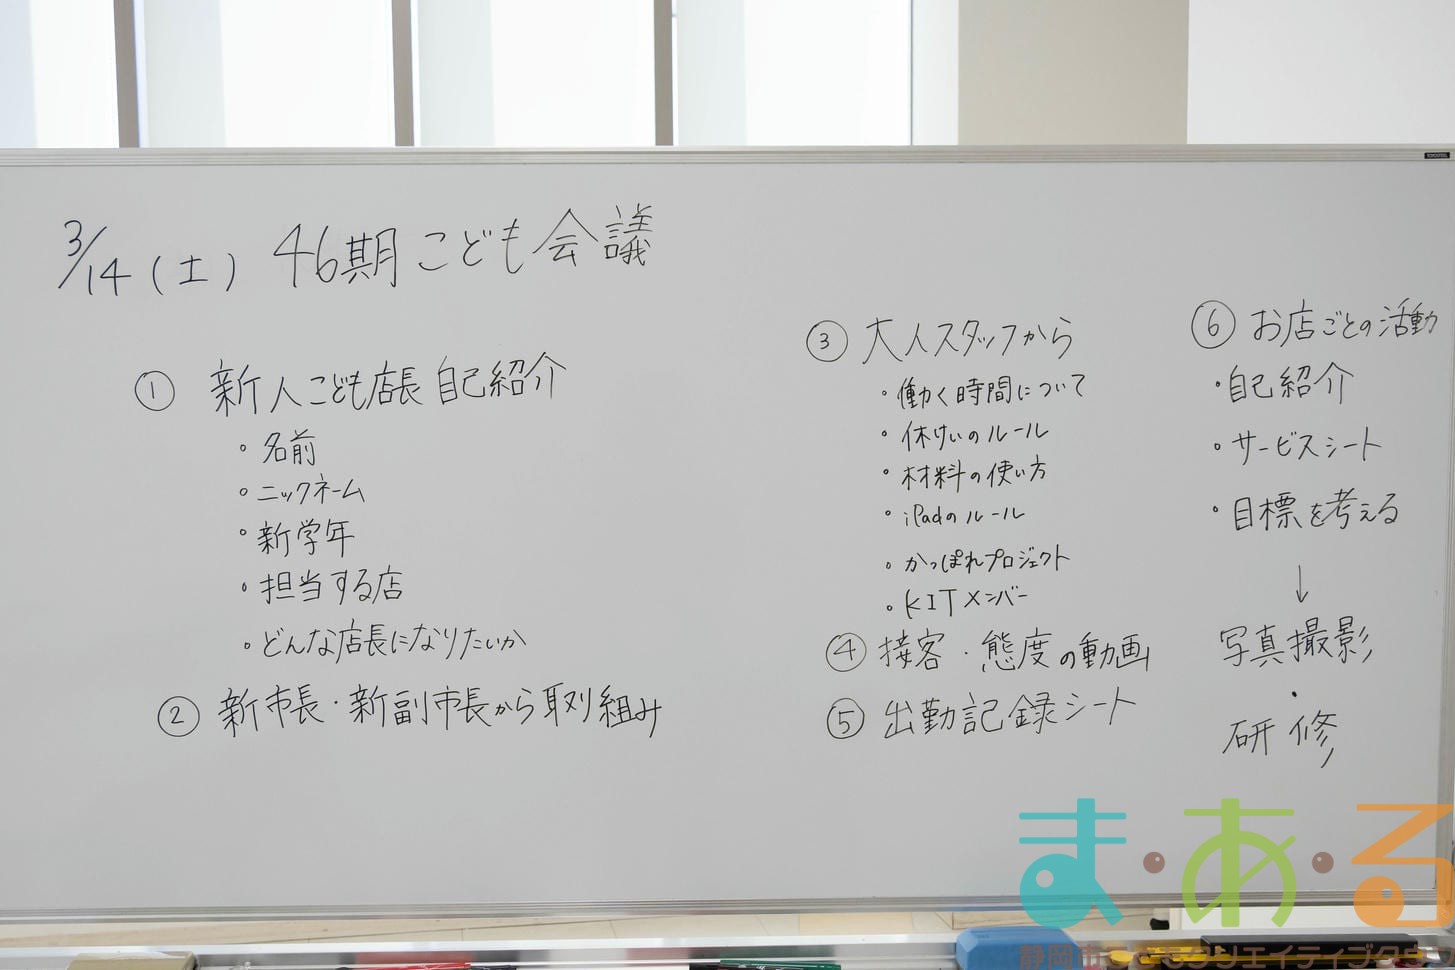 3/14(土) 46期こども会議
① 新人こども店長 自己紹介
・名前
・ニックネーム
・新学年
・担当する店
・どんな店長になりたいか
② 新市長・新副市長から取り組み
③ 大人スタッフから
・働く時間について
・休けいのルール
・材料の使い方
・iPadのルール
・かっぽれプロジェクト
・KITメンバー
④ 接客・態度の動画
⑤ 出勤記録シート
⑥ お店ごとの活動
・自己紹介
・サービスシート
・目標を考える
↓
写真撮影
・
研修
TOYOSTEEL
ま・あ・る
静岡市こどもクリエイティブタウン